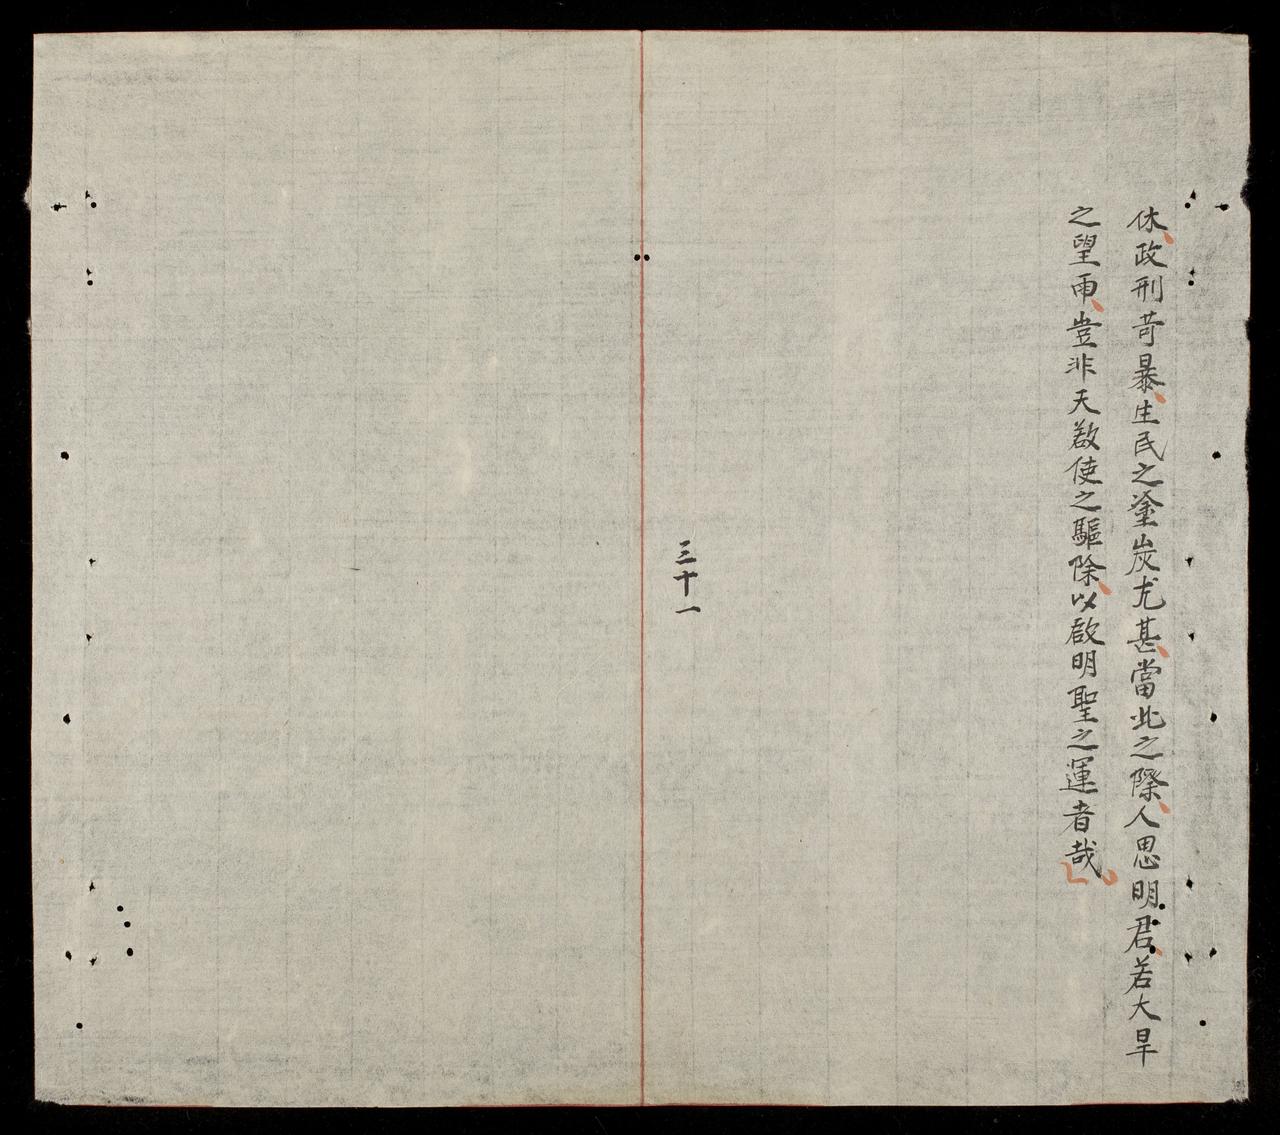 休、政刑苛暴、生民之塗炭尤甚、當此之際、人思明君、若大旱
之望雨、豈非天啟使之驅除、以啟明聖之運者哉」
三十一